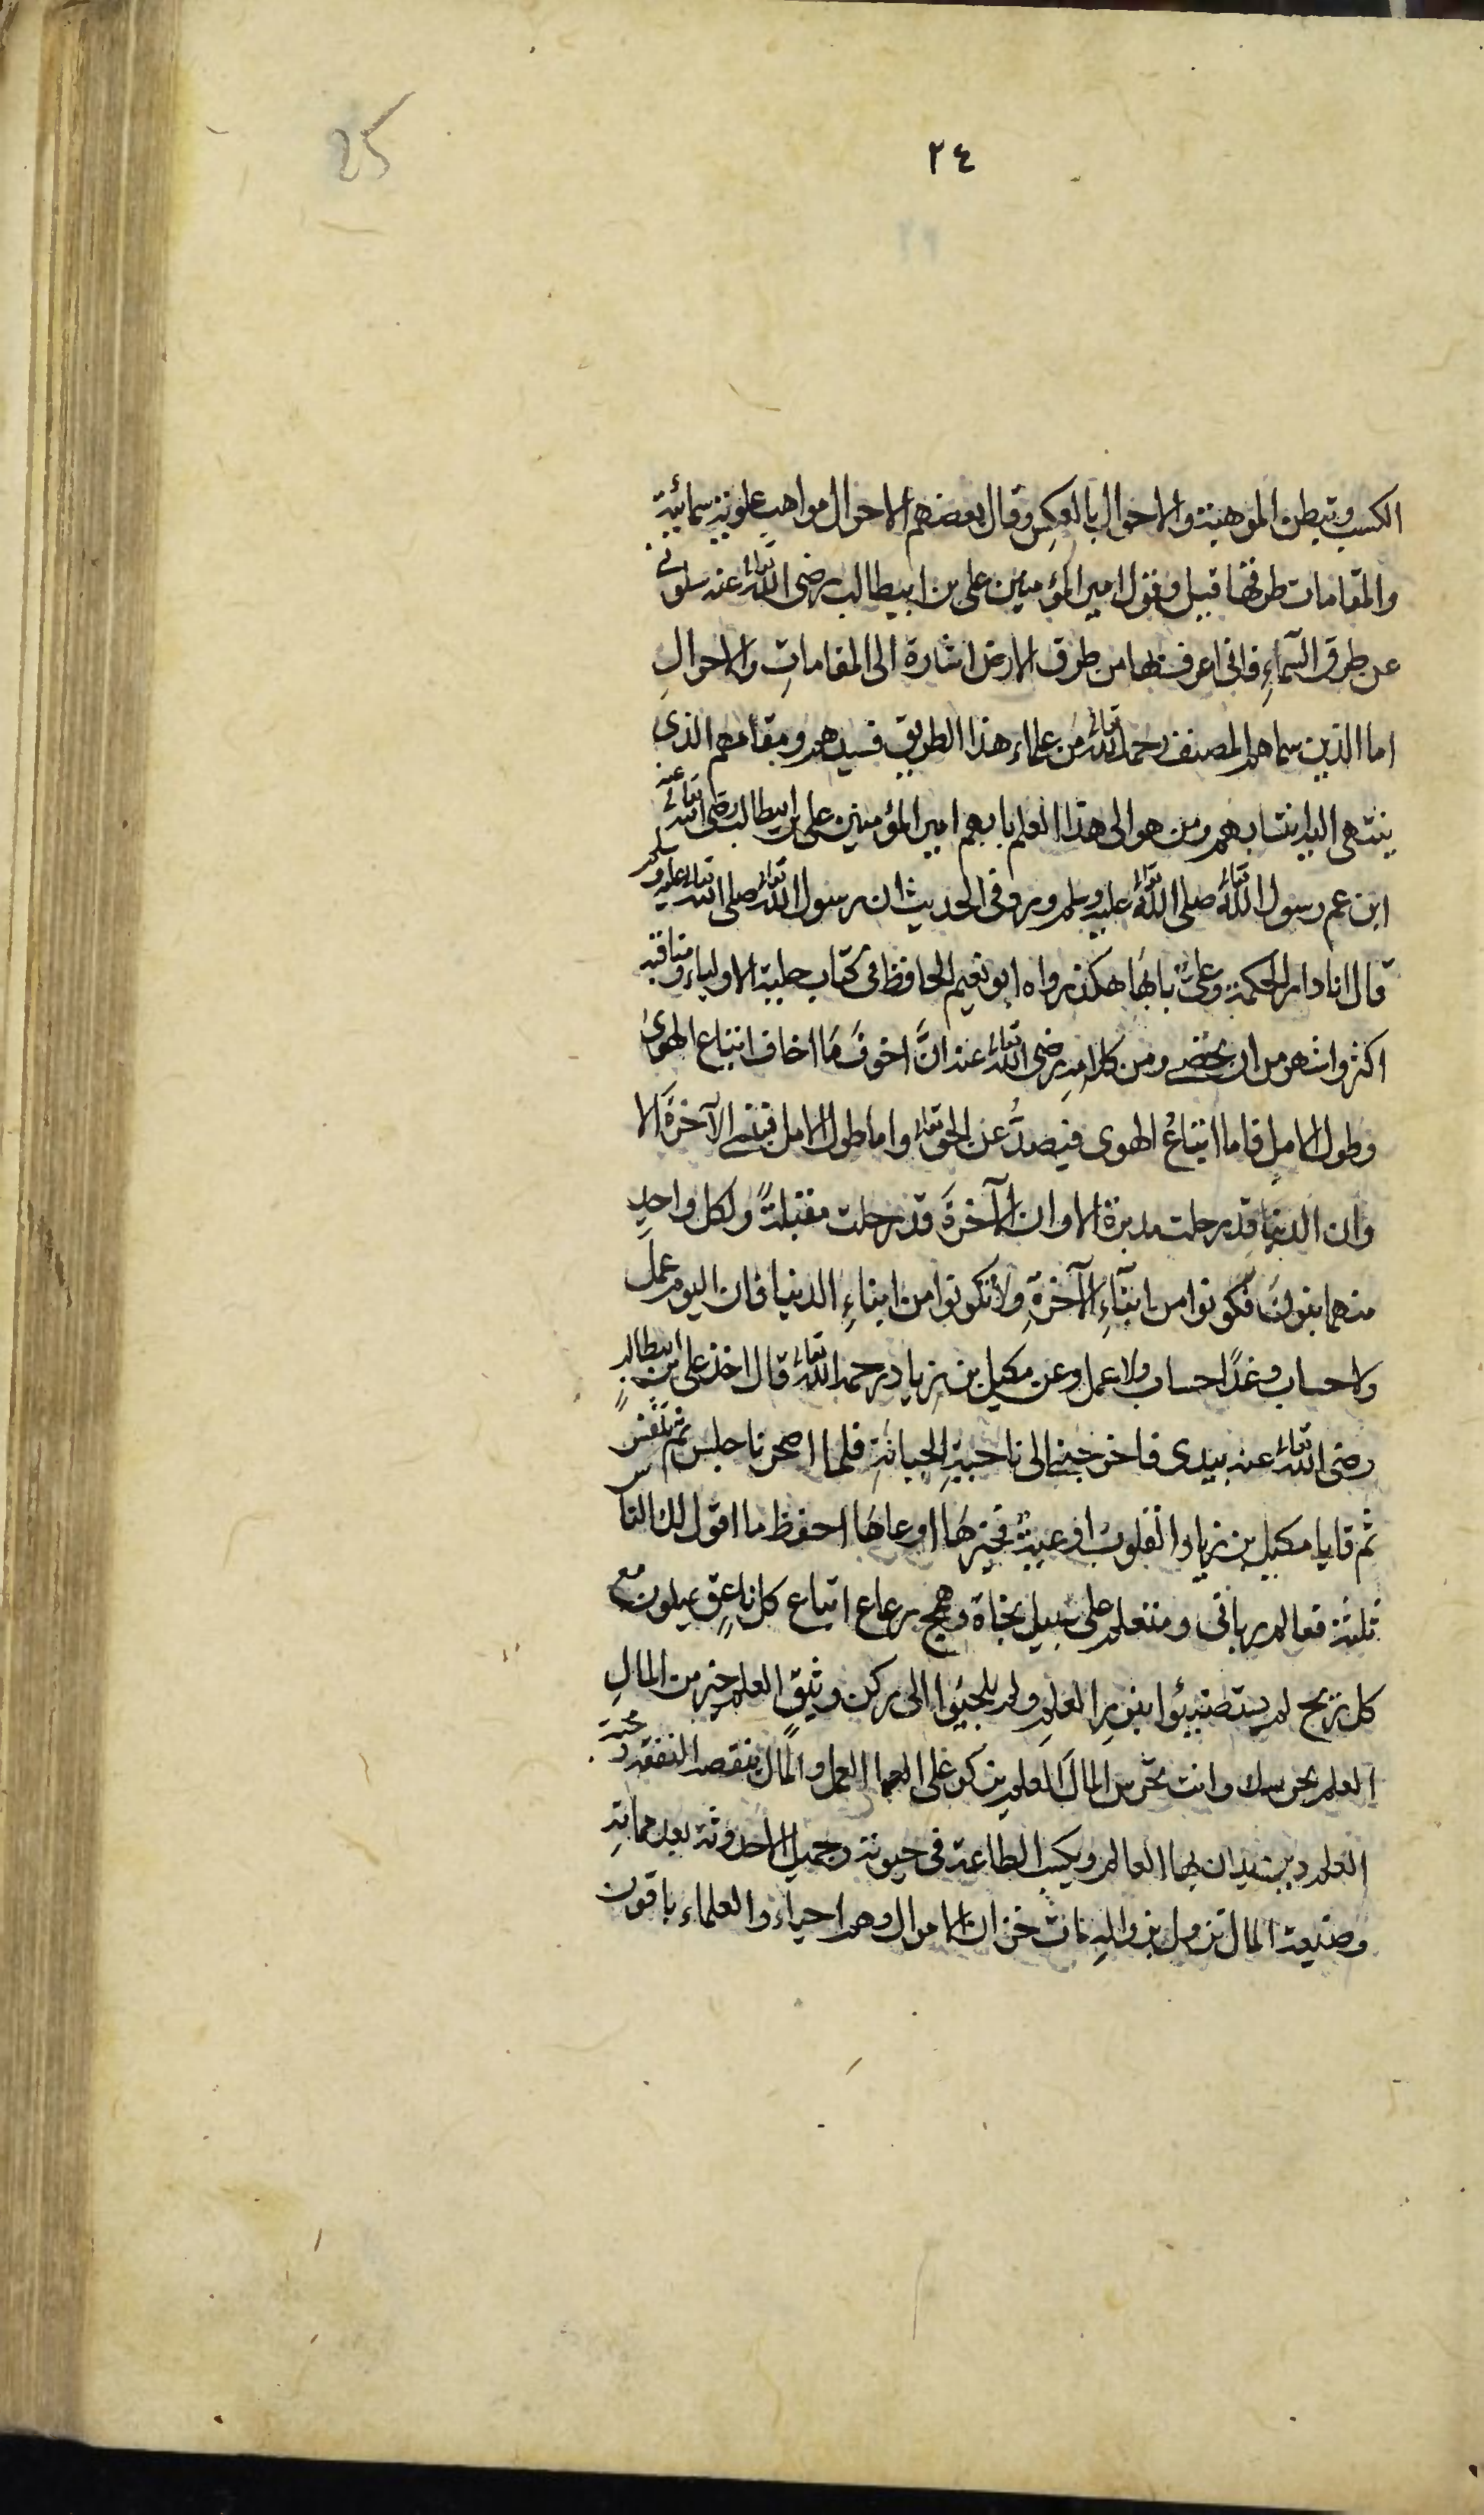 25
٢٤
الكسب وتبطن الموهبة والاحوال بالعكس وقال بعضهم الاحوال مواهب علوية سمائية
والمقامات طرقها قيل وقول امير المؤمنين على بن ابيطالب رضى الله تعالى عنه سلونى
عن طرق السمآءِ فانى اعرف بها من طرق الارض اشارة الى المقاماتِ والاحوالِ
اما الذين سماهم المصنف رحمه الله تعالى من علماء هذا الطريق فسيدهم ومقامهم الذى
ينتهى اليه انتسابهم ومن هو الى هذا العلم بابهم امير المؤمنين على بن ابيطالب رضى الله تعالى عنه
ابن عم رسول الله تعالى صلى الله تعالى عليه وسلم وروى فى الحديث ان رسول الله تعالى صلى الله تعالى عليه وسلم
قال انا دار الحكمة وعلىٌّ بابها هكذا رواه ابو نعيم الحافظ فى كتاب حلية الاولياء ومناقبه
اكثر واشهر من ان يحصى ومن كلامه رضى الله تعالى عنه انَّ اخوفَ مَا اخاف اتباع الهوىٰ
وطول الامل فاما اتباعُ الهوى فيصدُّ عن الحق تعالى واما طول الامل فينسى الآخرَة الا
وان الدنيا قد رحلت مدبرة الا وان الآخرةَ قد رحلت مقبلةً ولكل واحدٍ
منهما بنونَ فكونوا من ابنآءِ الآخرةِ ولا تكونوا من ابناءِ الدنيا فان اليوم عمل
ولا حساب وغدًا حساب ولا عمل وعن مكيل بن زياد رحمه الله تعالى قال اخذ على بن ابيطالب
رضى الله تعالى عنه بيدى فاخرجنى الى ناحيةِ الجبانةِ فلما اصحرنا جلس ثم تنفس
ثم قا يا مكيل بن زياد القلوبُ اوعيةٌ فخيرهَا اوعاهَا احفظ ما اقول لك الناس
ثلثة فعالم ربانى ومتعلم على سبيل نجاة وهمج رعاع اتباع كل ناعقٍ يميلون مع
كل ريح لم يستضيئوا بنورِ العلمِ ولم يلجيؤا الى ركن وثيق العلم خير من المالِ
العلم يحرسك وانت تحرس المالَ العلم يزكو على العمل والمال ينقصه النفقه ومحبة
العلم دين يدان بها العالم ويكسبه الطاعة فى حيوته وجميل الاحدوثة بعد مماتهِ
وصنيعة المال تزول بزوالهِ مات خزان الاموال وهم احياء والعلماء باقون